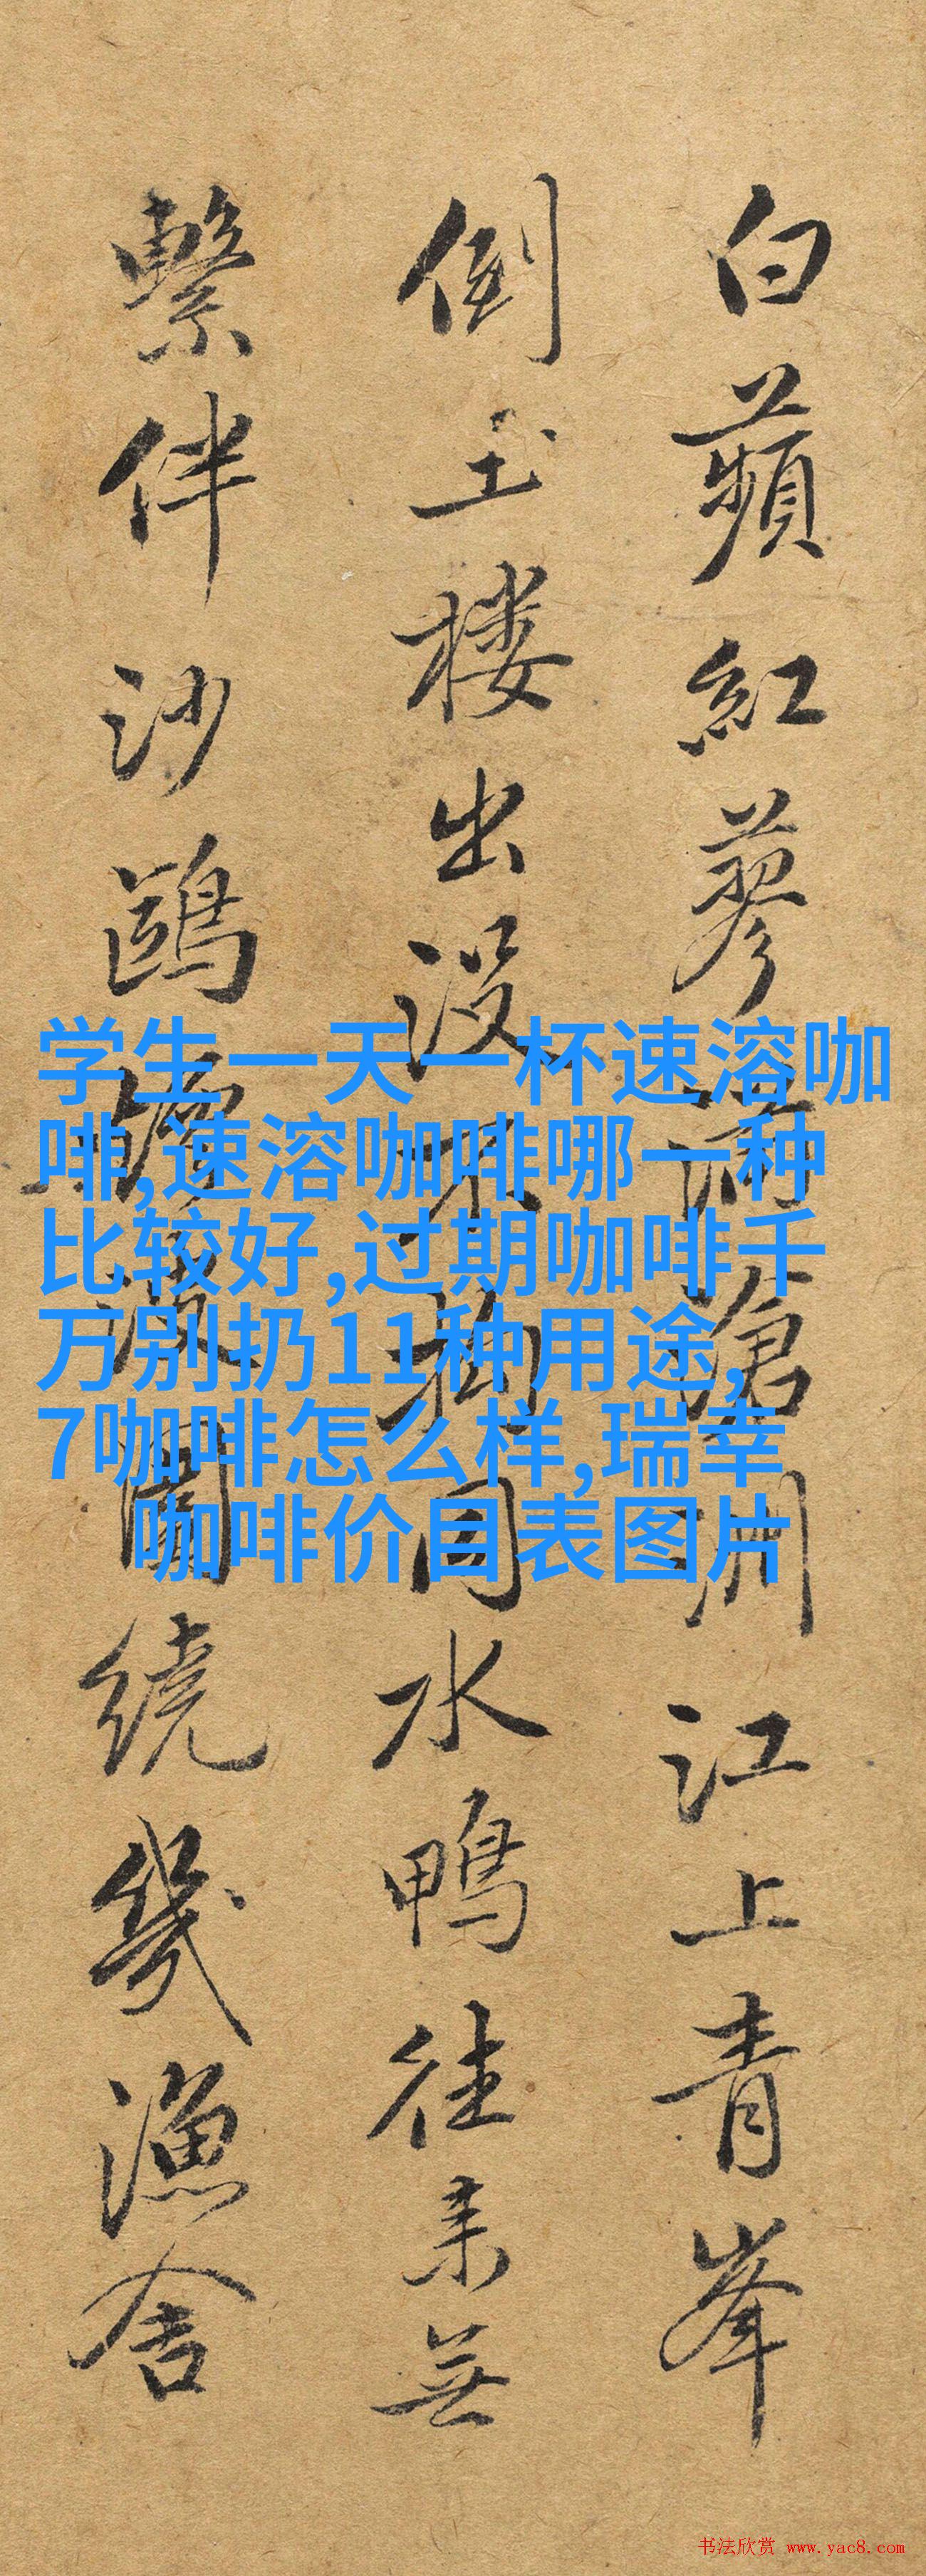 白蘋紅蓼滿滄洲江上青峯
倒玉楼出没不拘同水鴨往来無
繫伴沙鷗波闊繞幾漁舍
学生一天一杯速溶咖
啡,速溶咖啡哪一种
比较好,过期咖啡千
万别扔11种用途,
7咖啡怎么样,瑞幸
咖啡价目表图片
书法欣赏 www.yac8.com